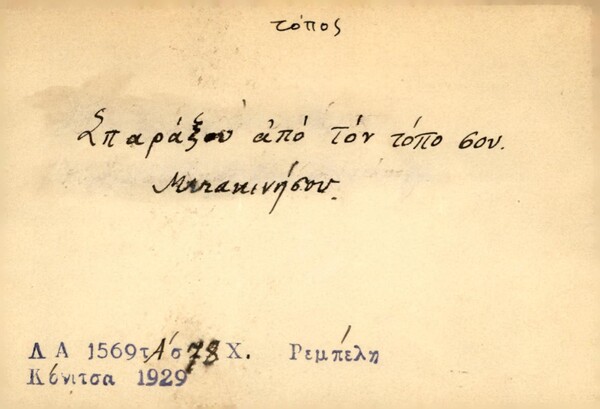 τόπος
Σπαράξου ἀπό τόν τόπο σου.
Μετακινήσου.
Λ Α 1569τΑ΄σ 78 Χ. Ρεμπέλη
Κόνιτσα 1929